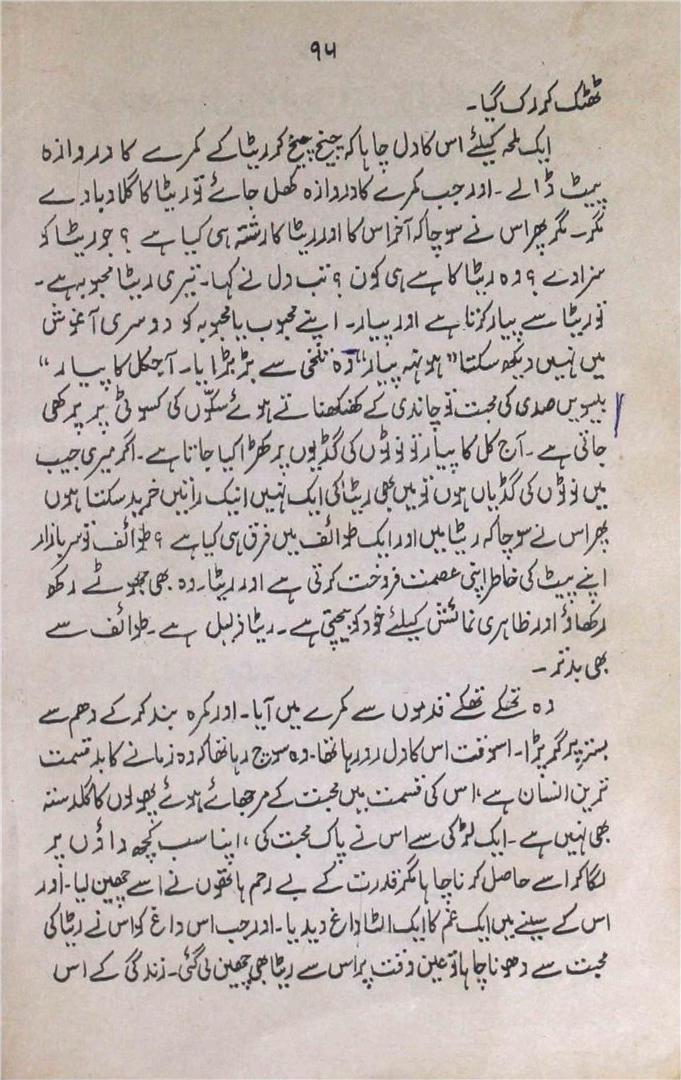 ۹۵
ٹھٹک کر رک گیا۔
ایک لمحہ کیلئے اس کا دل چاہا کہ چیخ چیخ کر ریٹا کے کمرے کا دروازہ
پیٹ ڈالے۔ اور جب کمرے کا دروازہ کھل جائے تو ریٹا کا گلا دبا دے
مگر۔ مگر پھر اس نے سوچا کہ آخر اس کا اور ریٹا کا رشتہ ہی کیا ہے؟ جو ریٹا کو
سزا دے؟ وہ ریٹا کا ہے ہی کون؟ تب دل نے کہا۔ تیری ریٹا محبوبہ ہے۔
تو ریٹا سے پیار کرتا ہے اور پیار۔ اپنے محبوب یا محبوبہ کو دوسری آغوش
میں نہیں دیکھ سکتا "ہونہہ پیار" وہ تلخی سے بڑبڑایا۔ آجکل کا پیار "
بیسویں صدی کی محبت تو چاندی کے کھنکھناتے ہوئے سکّوں کی کسوٹی پر پرکھی
جاتی ہے۔ آج کل کا پیار تو نوٹوں کی گڈیوں پر کھڑا کیا جاتا ہے۔ اگر میری جیب
میں نوٹوں کی گڈیاں ہوں تو میں بھی ریٹا کی ایک نہیں انیک راتیں خرید سکتا ہوں
پھر اس نے سوچا کہ ریٹا میں اور ایک طوائف میں فرق ہی کیا ہے؟ طوائف تو سر بازار
اپنے پیٹ کی خاطر اپنی عصمت فروخت کرتی ہے اور ریٹا۔ وہ بھی جھوٹے رکھ
رکھاؤ اور ظاہری نمائش کیلئے خود کو بیچتی ہے۔ ریٹا ذلیل ہے۔ طوائف سے
بھی بدتر۔
وہ تھکے تھکے قدموں سے کمرے میں آیا۔ اور کمرہ بند کر کے دھم سے
بستر پر گر پڑا۔ اسوقت اس کا دل رو رہا تھا۔ وہ سوچ رہا تھا کہ وہ زمانے کا بدقسمت
ترین انسان ہے، اس کی قسمت میں محبت کے مرجھائے ہوئے پھولوں کا گلدستہ
بھی نہیں ہے۔ ایک لڑکی سے اس نے پاک محبت کی، اپنا سب کچھ داؤں پر
لگا کر اسے حاصل کرنا چاہا مگر قدرت کے بے رحم ہاتھوں نے اسے چھین لیا۔ اور
اس کے سینے میں ایک غم کا ایک الٹا داغ دیدیا۔ اور جب اس داغ کو اس نے ریٹا کی
محبت سے دھونا چاہا تو عین وقت پر اس سے ریٹا بھی چھین لی گئی۔ زندگی کے اس